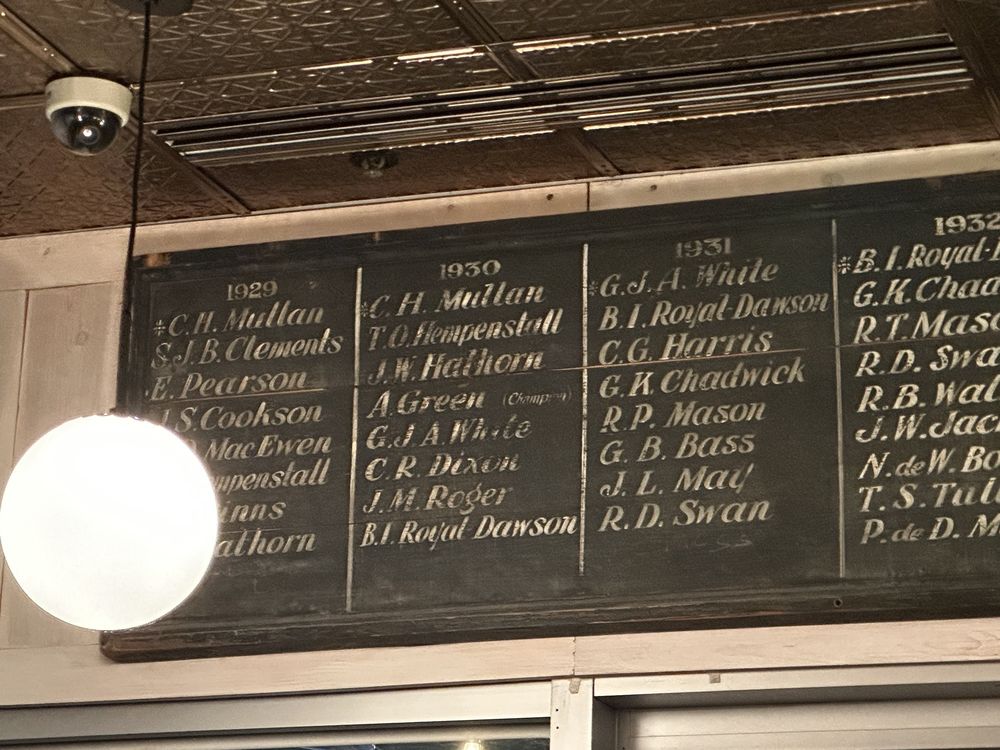 1929
*C.H. Mullan
S.J.B. Clements
E. Pearson
J.S. Cookson
MacEwen
1930
*C.H. Mullan
T.O. Hempenstall
J.W. Hathorn
A. Green (Champion)
G.J.A. White
C.R. Dixon
J.M. Roger
B.I. Royal Dawson
1931
*G.J.A. White
B.I. Royal-Dawson
C.G. Harris
G.K. Chadwick
R.P. Mason
G.B. Bass
J.L. May
R.D. Swan
1932
*B.I. Royal-
G.K.
R.T.
R.D.
R.B.
J.W.
N. de W.
T.S.
P. de D.